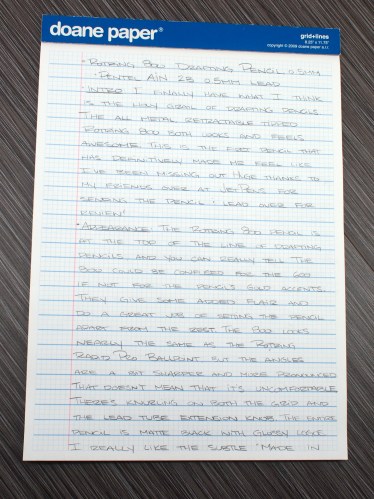 doane paper®
grid+lines
8.25" x 11.75"
copyright © 2009 doane paper s.l.l.
• Rotring 800 Drafting Pencil 0.5mm
• Pentel Ain 2B 0.5mm lead
• Intro: I finally have what I think
is the holy grail of drafting pencils.
The all metal retractable tipped
Rotring 800 both looks and feels
awesome. This is the first pencil that
has definitively made me feel like
I've been missing out. Huge thanks to
my friends over at JetPens for
sending the pencil + lead over for
review!
• Appearance: The Rotring 800 pencil is
at the top of the line of drafting
pencils and you can really tell. The
800 could be confused for the 600
if not for the pencils gold accents.
They give some added flair and
do a great job of setting the pencil
apart from the rest. The 800 looks
nearly the same as the Rotring
Rapid Pro Ballpoint, but the angles
are a bit sharper and more pronounced
that doesn't mean that it's uncomfortable.
There's knurling on both the grip and
the lead tube extension knob. The entire
pencil is matte black with glossy logos.
I really like the subtle "Made in